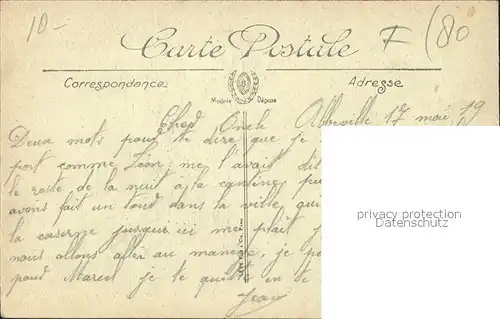 10-
F (80
Carte Postale
Correspondance
Adresse
Modèle Déposé
Abbeville 17 mai 19
Cher Oncle
Deux mots pour te dire que je
port comme Léon me l'avait dit
le reste de la nuit à la cantine, pu
avons fait un tour dans la ville, qui
la caserne jusque ici me plait
nous allons aller au manège, je
Marcel je te quitte en te
Jean
privacy protection
Datenschutz